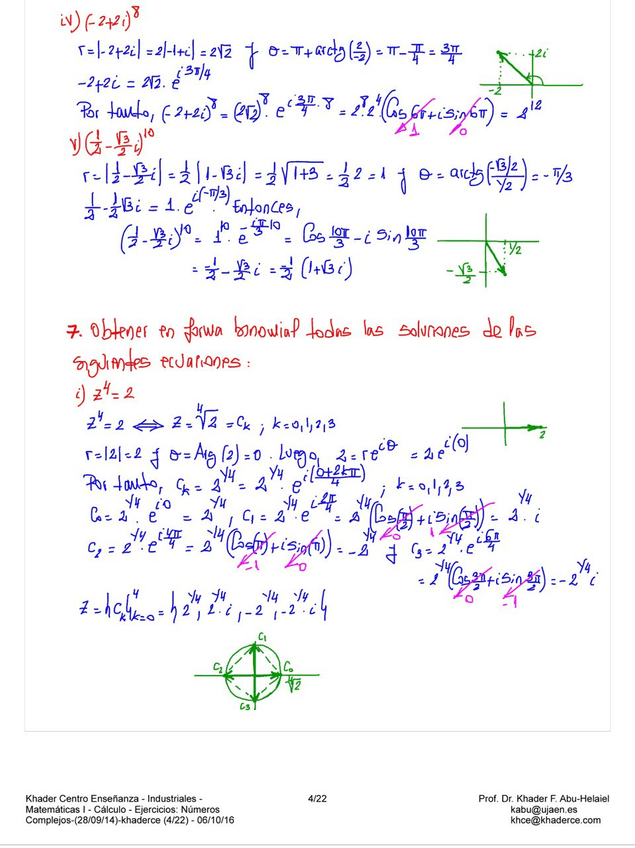 iv) (-2+2i)^8
r=|-2+2i|=2|-1+i|=2√2 y θ=π+arctg(2/-2)=π-π/4=3π/4
-2+2i = 2√2 · e^{i3π/4}
2i
-2
Por tanto, (-2+2i)^8=(2√2)^8 · e^{i 3π/4 · 8} = 2^8·2^4(Cos 6π+i sin 6π) = 2^12
1 0
v) (1/2 - √3/2 i)^10
r=|1/2-√3/2 i|=1/2|1-√3i|=1/2√(1+3)=1/2 2=1 y θ=arctg(-√3/2 / 1/2)=-π/3
1/2-1/2√3i = 1·e^{i(-π/3)}. Entonces,
(1/2-√3/2 i)^10 = 1^10 · e^{-iπ/3 10} = Cos 10π/3 - i sin 10π/3
1/2
-√3/2
= -1/2 - √3/2 i = -1/2 (1+√3i)
7. Obtener en forma binomial todas las soluciones de las
siguientes ecuaciones:
i) z^4=2
z^4=2 ⟺ z=∜2 = C_k ; k=0,1,2,3
2
r=|2|=2 y θ=Arg(2)=0. Luego, 2=re^{iθ} = 2e^{i(0)}
Por tanto, C_k = 2^{1/4} = 2^{1/4} · e^{i(0+2kπ/4)} ; k=0,1,2,3
C_0=2^{1/4} · e^{i0} = 2^{1/4}, C_1=2^{1/4} · e^{i 2π/4} = 2^{1/4}(Cos(π/2)+i sin(π/2)) = 2^{1/4} · i
0 1
C_2=2^{1/4} · e^{i 4π/4} = 2^{1/4}(Cos(π)+i sin(π))=-2^{1/4} y C_3=2^{1/4} · e^{i 6π/4}
-1 0
= 2^{1/4}(Cos 3π/2+i sin 3π/2)=-2^{1/4} i
0 -1
z={C_k}^4_{k=0}={2^{1/4}, 2^{1/4}·i, -2^{1/4}, -2^{1/4}·i}
C_1
C_2 C_0
∜2
C_3
Khader Centro Enseñanza - Industriales -
Matemáticas I - Cálculo - Ejercicios: Números
Complejos-(28/09/14)-khaderce (4/22) - 06/10/16
4/22
Prof. Dr. Khader F. Abu-Helaiel
kabu@ujaen.es
khce@khaderce.com